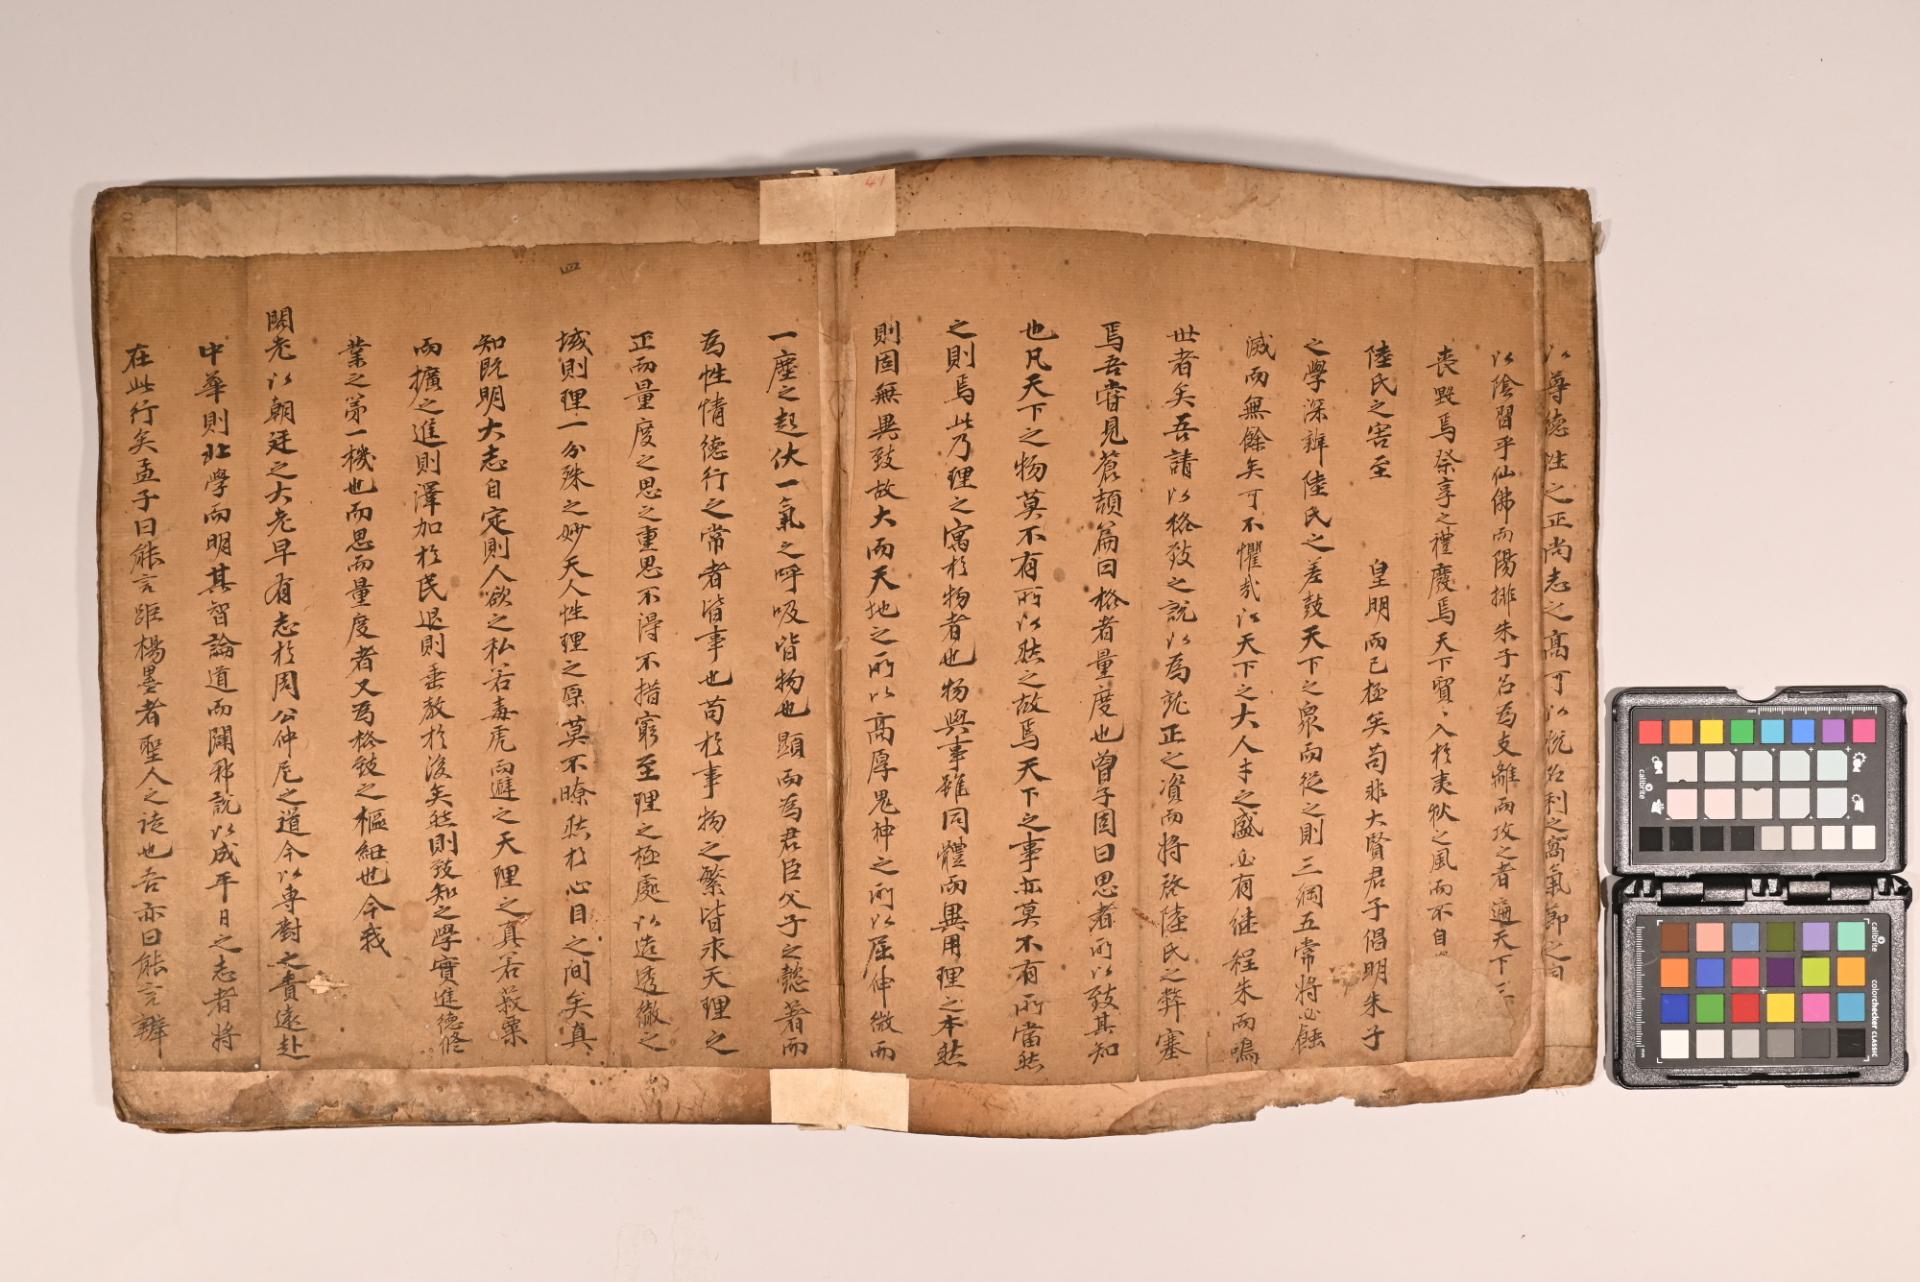 以尊德性之正尚志之高可以悅名利之窩氣節之
以陰習乎仙佛而陽排朱子名爲支離而攻之者遍天下三
喪斁焉祭享之禮廢焉天下貿〻入於夷狄之風而不自
陸氏之害至 皇明而已極矣苟非大賢君子倡明朱子
之學深辨陸氏之差鼓天下之衆而從之則三綱五常將必蝕
滅而無餘矣可不懼哉以天下之大人才之盛必有继程朱而鳴
世者矣吾請以格致之說以爲就正之資而將啓陸氏之弊塞
焉吾嘗見蒼頡篇曰格者量度也曾子固曰思者所以致其知
也凡天下之物莫不有所以然之故焉天下之事亦莫不有所當然
之則焉此乃理之寓於物者也物與事雖同體而異用理之本然
則固無異致故大而天地之所以高厚鬼神之所以屈伸微而
一塵之起伏一氣之呼吸皆物也顯而爲君臣父子之懿著而
爲性情德行之常者皆事也苟於事物之繁皆求天理之
正而量度之思之重思不得不措窮至理之極處以造透徹之
域則理一分殊之妙天人性理之原莫不瞭然於心目之間矣真
知既明大志自定則人欲之私若毒虎而避之天理之真若菽粟
而擴之進則澤加於民退則垂教於後矣然則致知之學實進德修
業之第一機也而思而量度者又爲格致之樞紐也今我
閤老以朝廷之大老早有志於周公仲尼之道今以專對之責遠赴
中華則北學而明其智論道而闢邪說以成平日之志者將
在此行矣孟子曰能言距楊墨者聖人之徒也吾亦曰能言辨
四
41